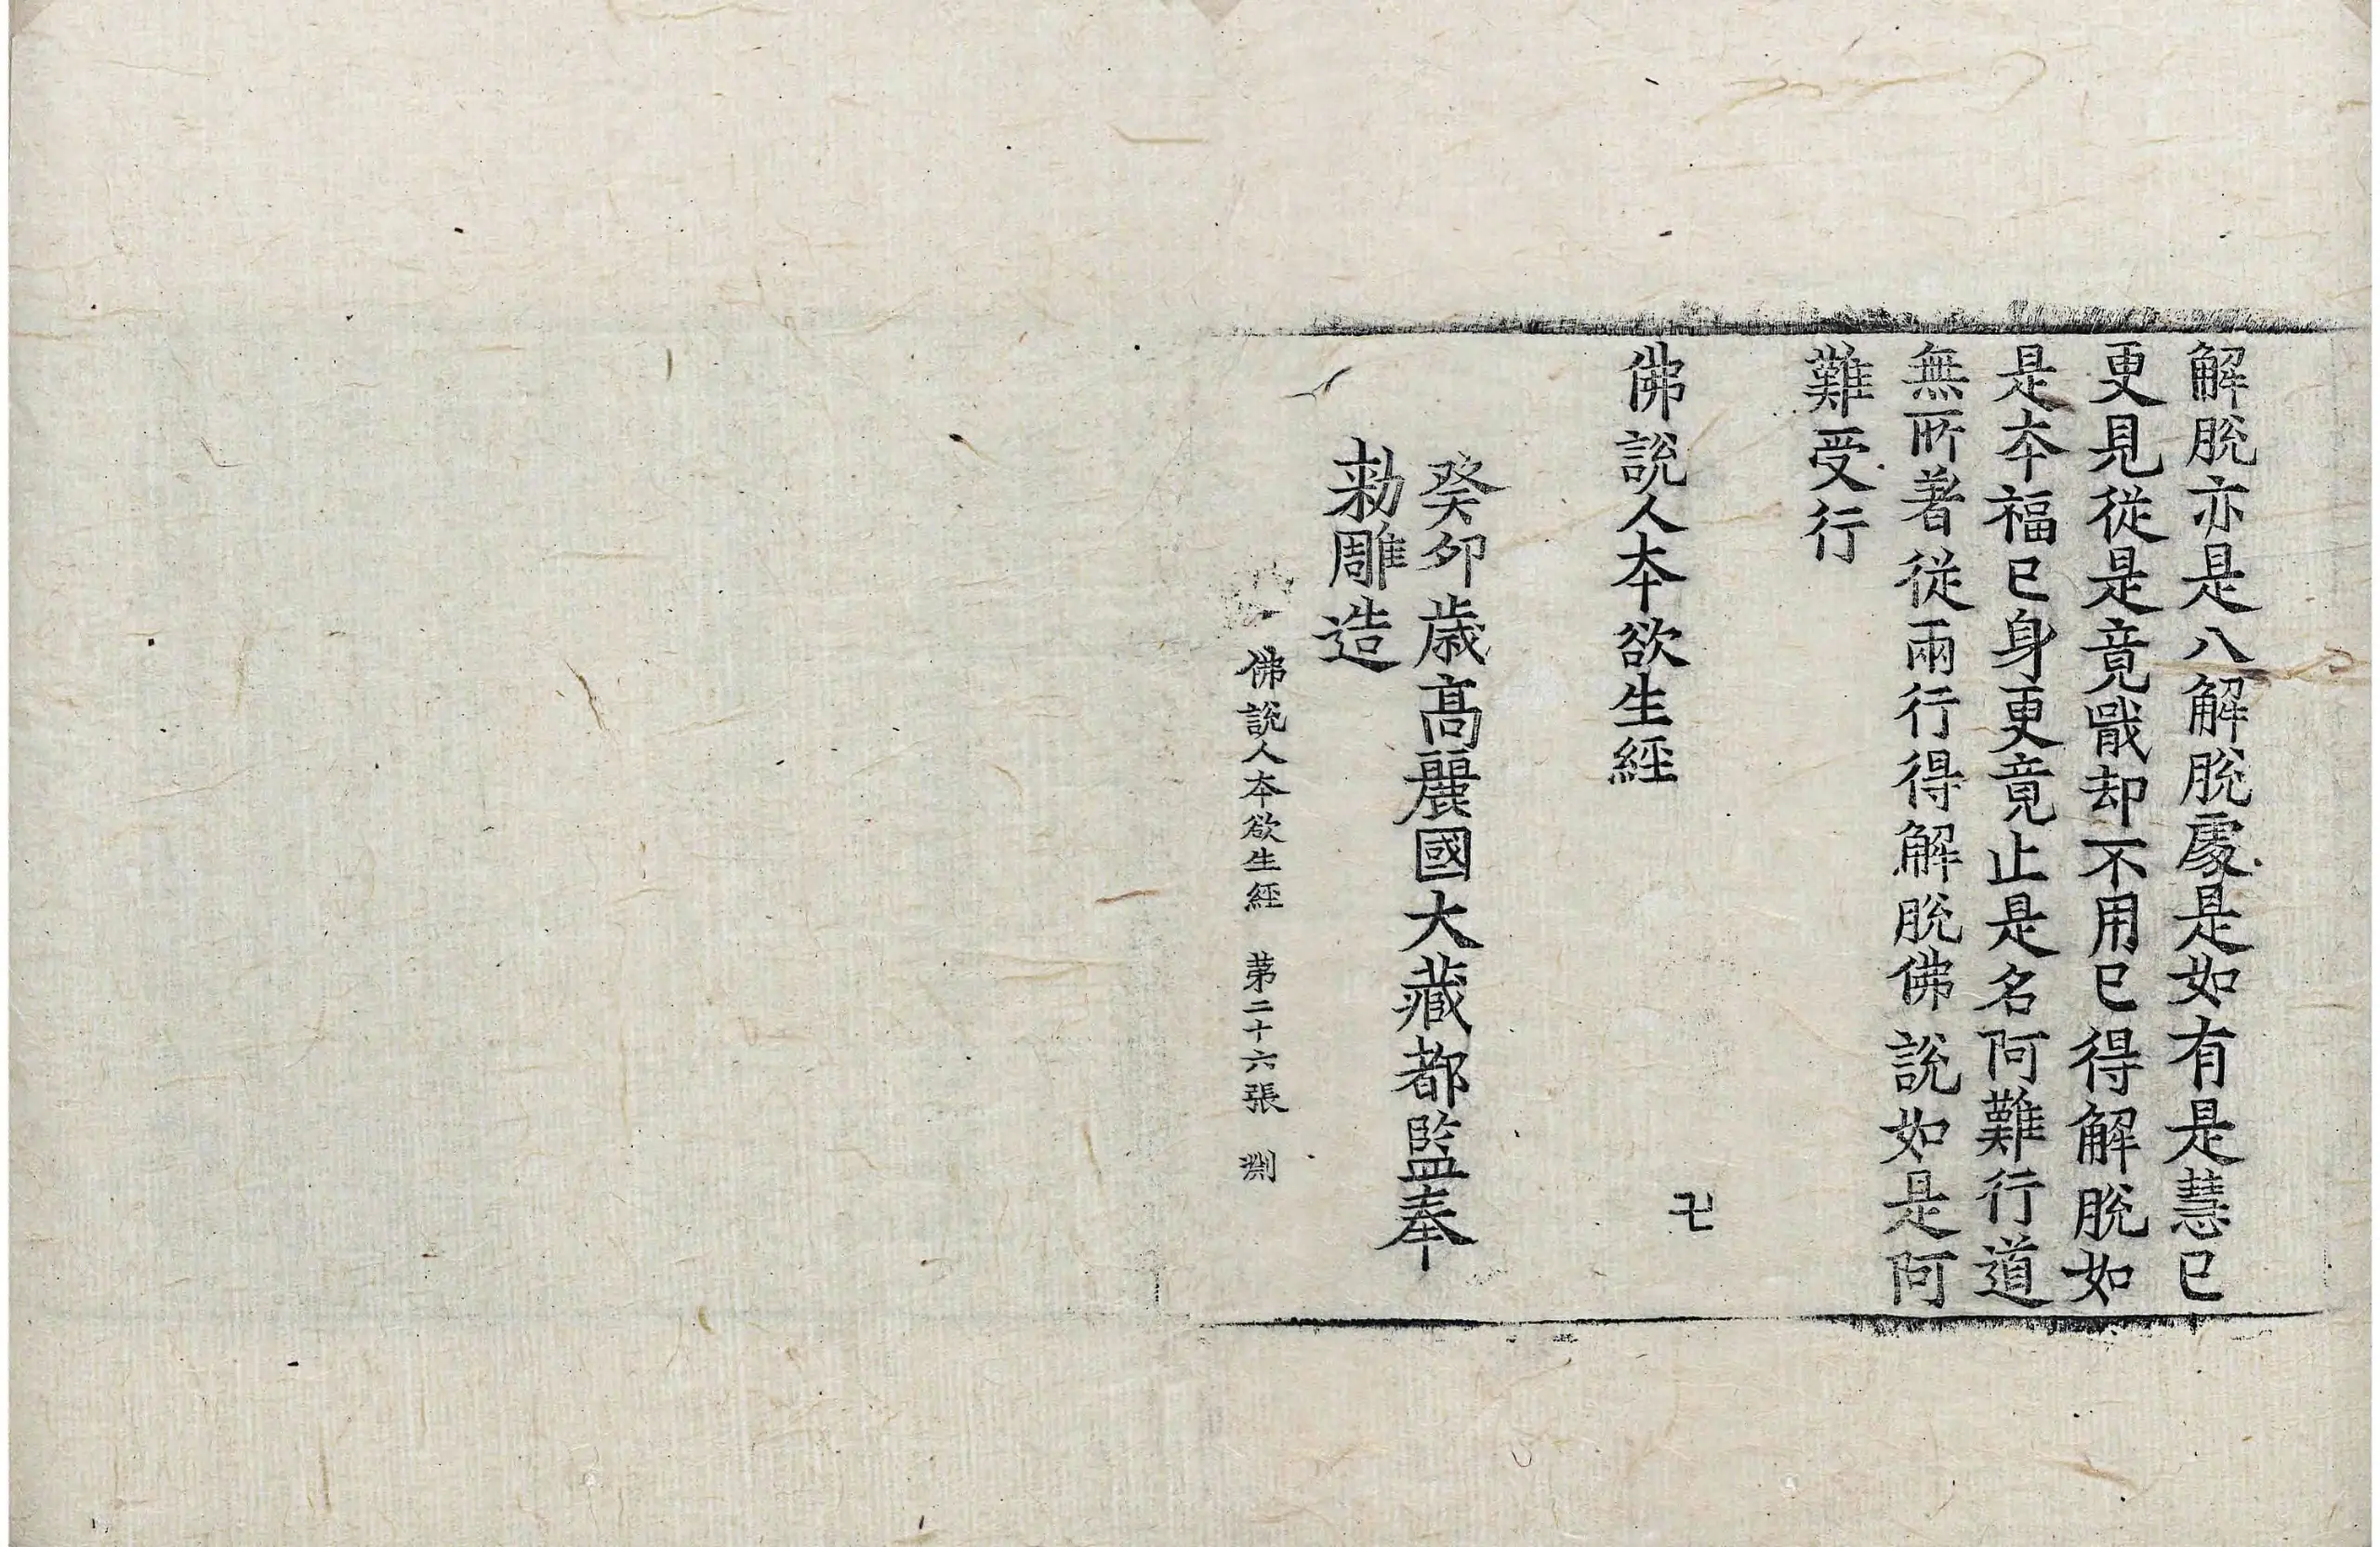 解脫亦是八解脫處是如有是慧已
更見從是竟戩却不用已得解脫如
是本福已身更竟止是名阿難行道
無所著從兩行得解脫佛說如是阿
難受行
佛說人本欲生經
卍
癸卯歲高麗國大藏都監奉
勑雕造
佛說人本欲生經 第二十六張 淵